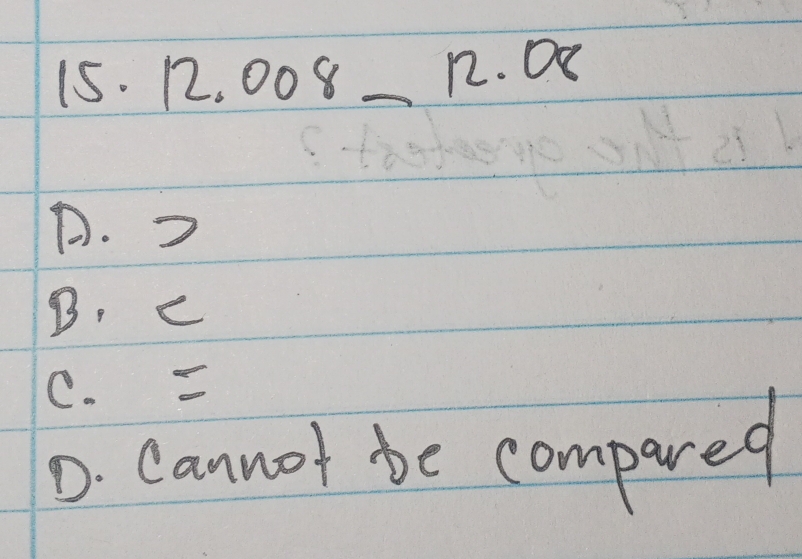 15. 12.008 _ 12.08
A. >
B. <
C. =
D. Cannot be compared